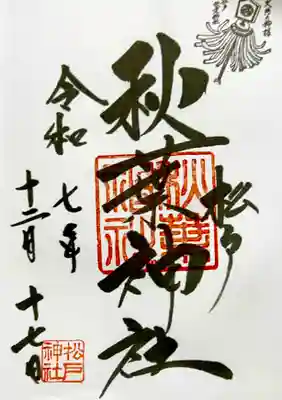 松戸
秋葉神社
秋葉
神社
令和 七年
十二月 十七日
松戸
神社